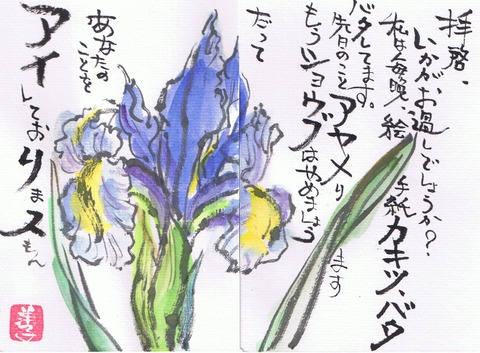 拝啓、
いかがお過しでしょうか?
私は毎晩、絵手紙カキツ、バツ
バタしてます。
先日のことアヤメります
もうショウブはやめましょう
だって
あなたの
ことを
アイしておりまスもん